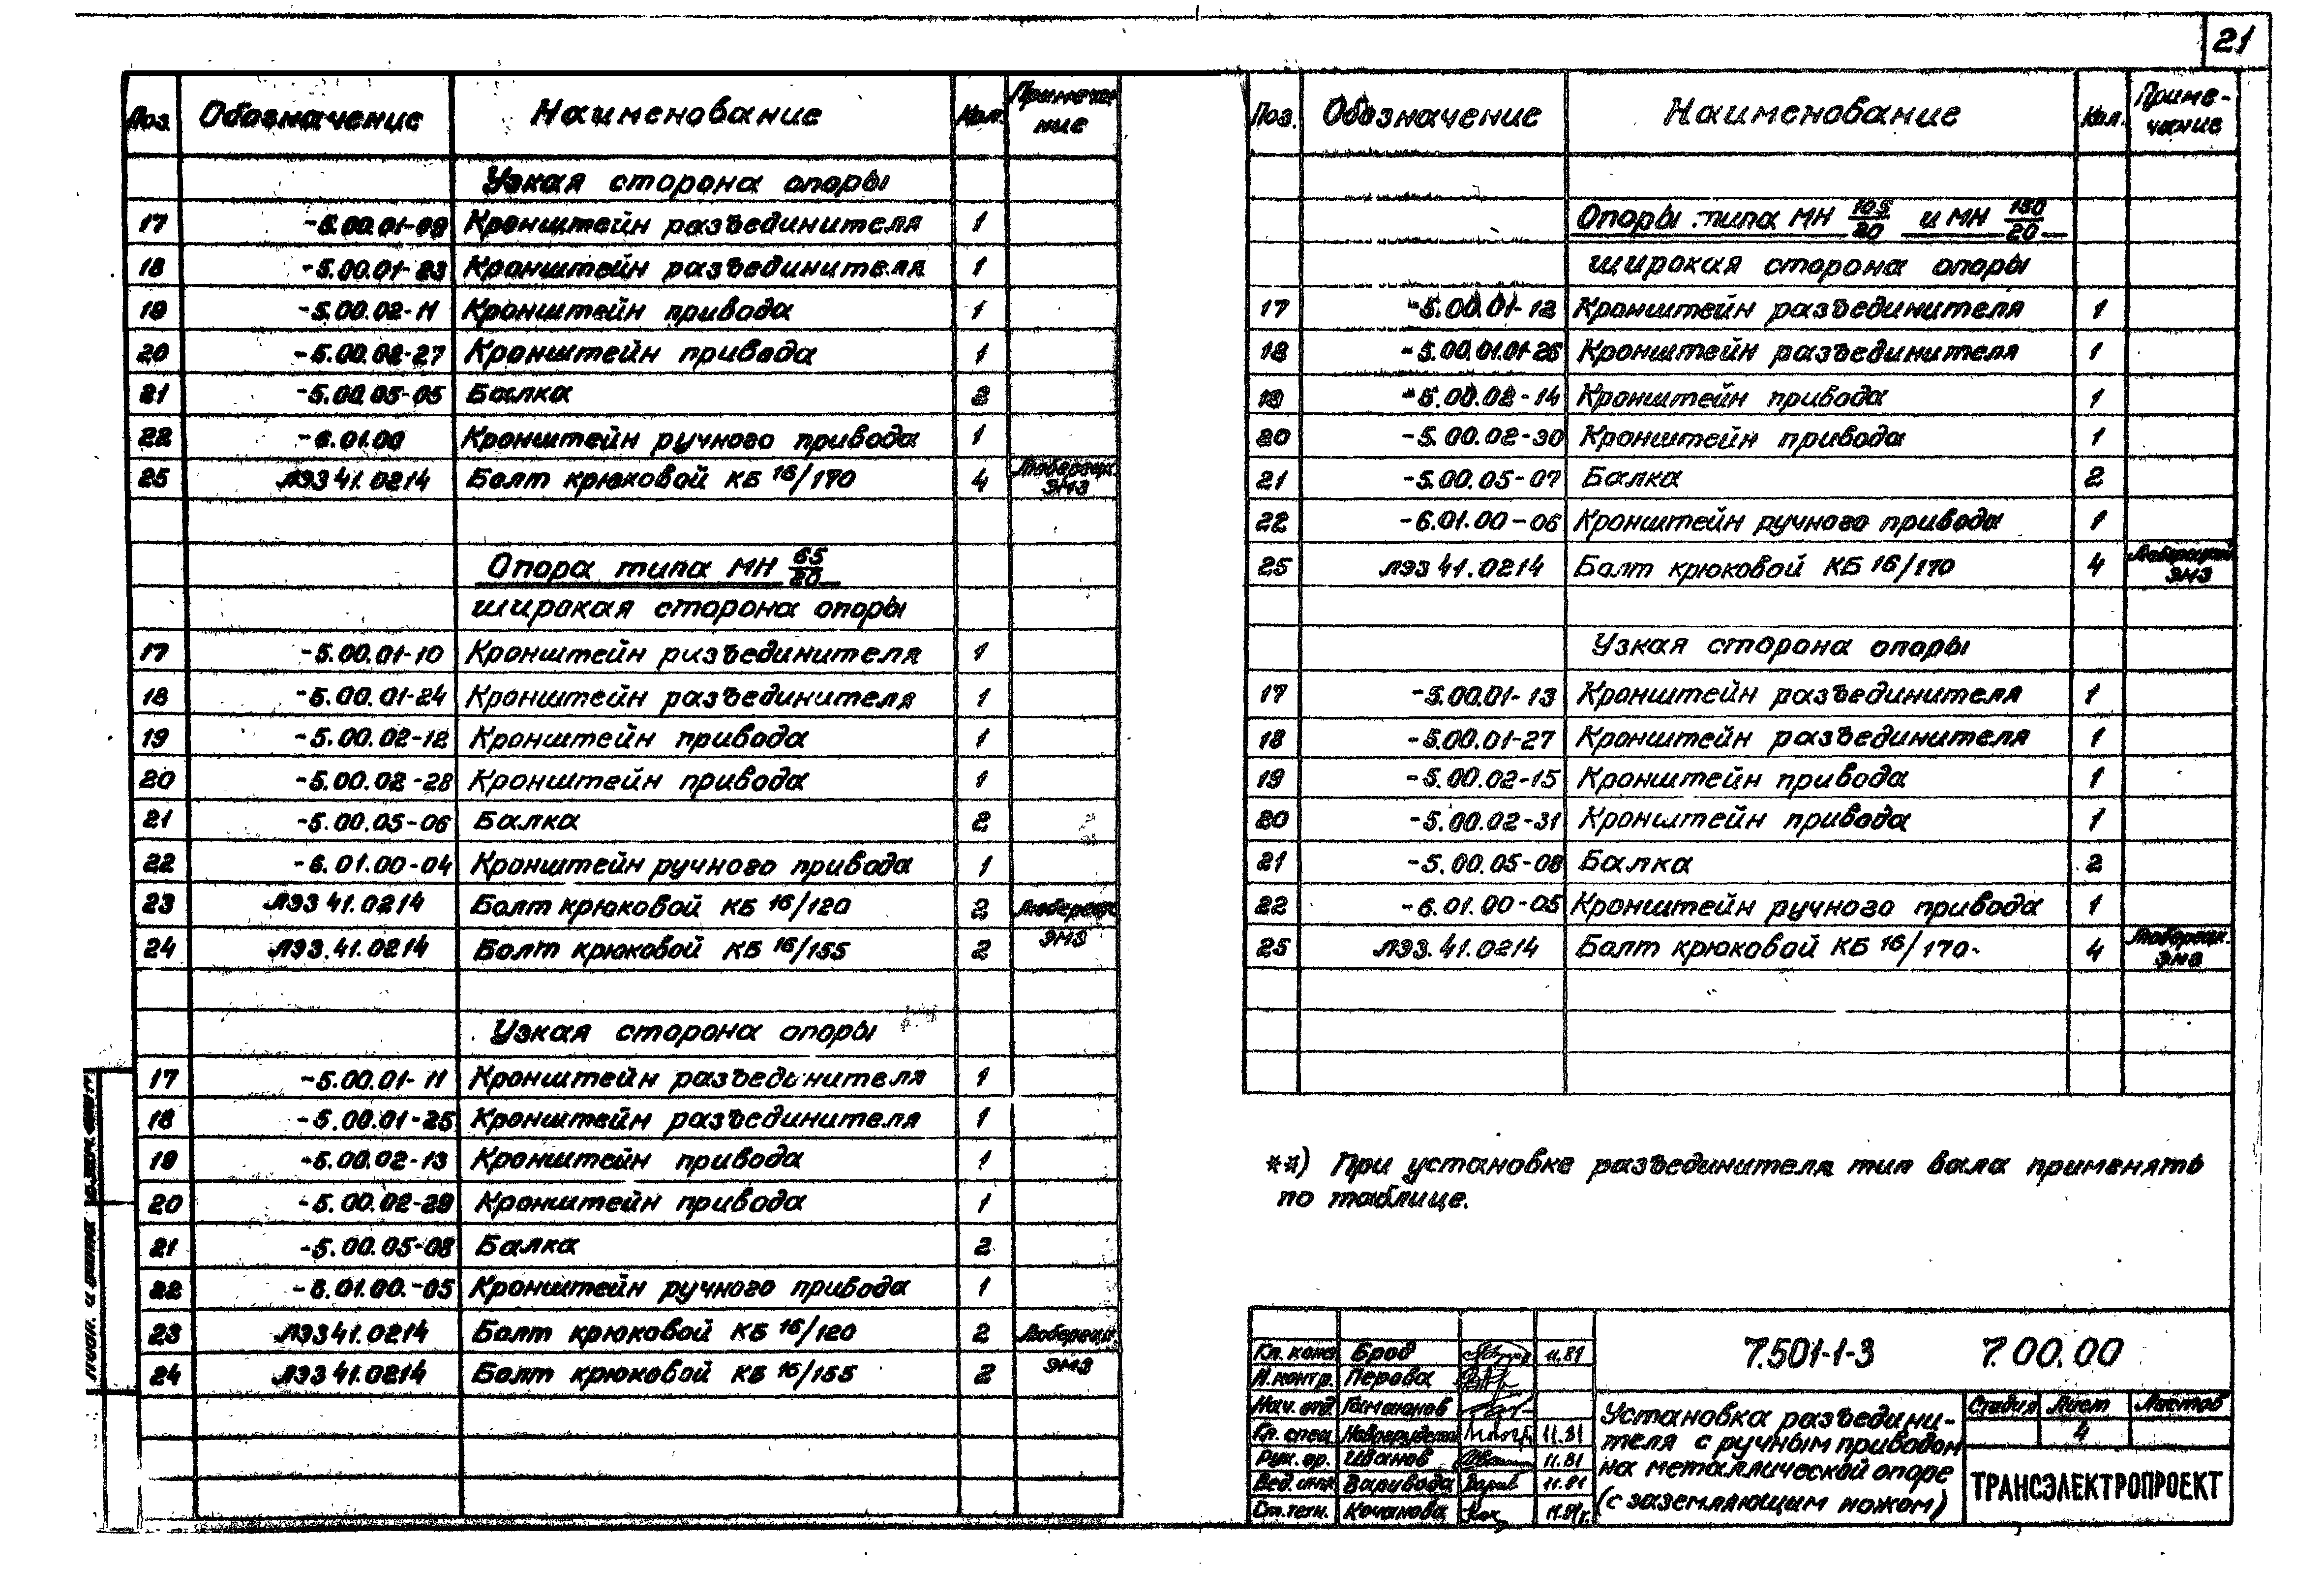 21
Поз. Обозначение Наименование Кол. Примеча-
ние
Узкая сторона опоры
17 -5.00.01-09 Кронштейн разъединителя 1
18 -5.00.01-23 Кронштейн разъединителя 1
19 -5.00.02-11 Кронштейн привода 1
20 -5.00.02-27 Кронштейн привода 1
21 -5.00.05-05 Балка 2
22 -6.01.00 Кронштейн ручного привода 1
25 ЛЭЗ 41.0214 Болт крюковой КБ 16/170 4 Люберецк.
ЭМЗ
Опора типа МН 65/20
широкая сторона опоры
17 -5.00.01-10 Кронштейн разъединителя 1
18 -5.00.01-24 Кронштейн разъединителя 1
19 -5.00.02-12 Кронштейн привода 1
20 -5.00.02-28 Кронштейн привода 1
21 -5.00.05-06 Балка 2
22 -6.01.00-04 Кронштейн ручного привода 1
23 ЛЭЗ 41.0214 Болт крюковой КБ 16/120 2 Люберецк.
24 ЛЭЗ.41.0214 Болт крюковой КБ 16/155 2 ЭМЗ
Узкая сторона опоры
17 -5.00.01-11 Кронштейн разъединителя 1
18 -5.00.01-25 Кронштейн разъединителя 1
19 -5.00.02-13 Кронштейн привода 1
20 -5.00.02-29 Кронштейн привода 1
21 -5.00.05-08 Балка 2
22 -6.01.00.-05 Кронштейн ручного привода 1
23 ЛЭЗ 41.0214 Болт крюковой КБ 16/120 2 Люберецк.
24 ЛЭЗ 41.0214 Болт крюковой КБ 16/155 2 ЭМЗ
Подп. и дата
Поз. Обозначение Наименование Кол. Приме-
чание
Опоры типа МН 105/20 и МН 150/20
широкая сторона опоры
17 -5.00.01-12 Кронштейн разъединителя 1
18 -5.00.01.01-26 Кронштейн разъединителя 1
19 -5.00.02-14 Кронштейн привода 1
20 -5.00.02-30 Кронштейн привода 1
21 -5.00.05-07 Балка 2
22 -6.01.00-06 Кронштейн ручного привода 1
25 ЛЭЗ 41.0214 Болт крюковой КБ 16/170 4 Люберецкий
ЭМЗ
Узкая сторона опоры
17 -5.00.01-13 Кронштейн разъединителя 1
18 -5.00.01-27 Кронштейн разъединителя 1
19 -5.00.02-15 Кронштейн привода 1
20 -5.00.02-31 Кронштейн привода 1
21 -5.00.05-08 Балка 2
22 -6.01.00-05 Кронштейн ручного привода 1
25 ЛЭЗ.41.0214 Болт крюковой КБ 16/170 4 Люберецк.
ЭМЗ
**) При установке разъединителя тип вала применять
по таблице.
7.501-1-3 7.00.00
Гл. конс Брод 11.81
Н.контр. Перова
Нач. отд. Гамаюнов
Гл. спец. 11.81
Рук. гр. Иванов 11.81
Вед. инж Варивода 11.81
Ст.техн. Кочанова 11.81г.
Установка разъедини-
теля с ручным приводом
на металлической опоре
(с заземляющим ножом)
Стадия Лист Листов
4
ТРАНСЭЛЕКТРОПРОЕКТ